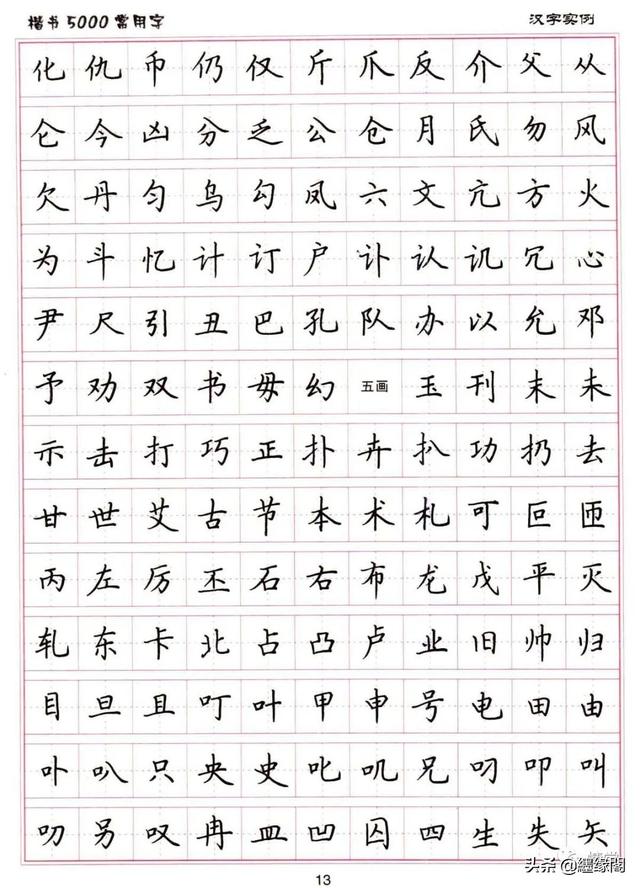 楷书5000常用字 汉字实例
化仇币仍仅斤爪反介父从
仑今凶分乏公仓月氏勿风
欠丹匀乌勾凤六文亢方火
为斗忆计订户讣认讥冗心
尹尺引丑巴孔队办以允邓
予劝双书毋幻五画玉刊末未
示击打巧正扑卉扒功扔去
甘世艾古节本术札可叵匝
丙左厉丕石右布龙戊平灭
轧东卡北占凸卢业旧帅归
目旦且叮叶甲申号电田由
卟叭只央史叱叽兄叼叩叫
叻另叹冉皿凹囚四生失矢
头条@纒缘閣
13